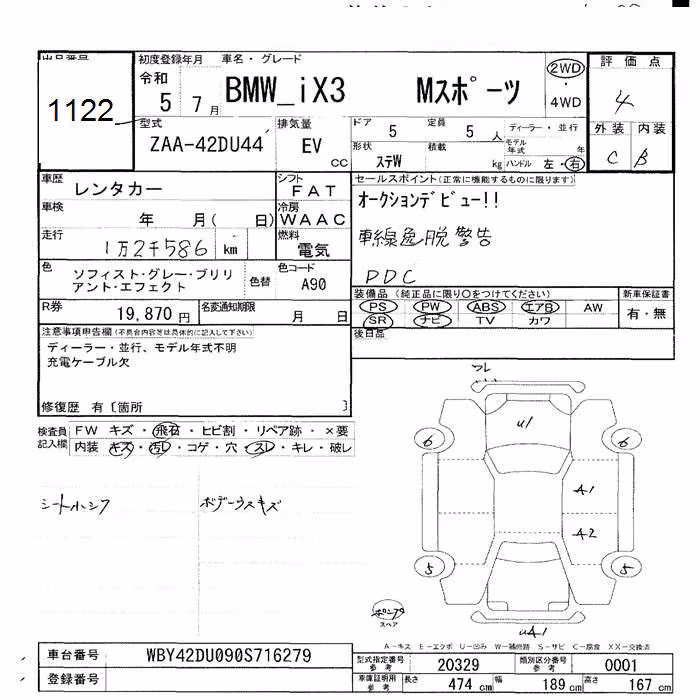 出品番号
1122
初度登録年月
令和
5 7月
車名・グレード
BMW_iX3 Mスポーツ
2WD
・
4WD
評価点
4
外装 内装
C B
型式
ZAA-42DU44
排気量
EV
CC
ドア
5
定員
5 人
ディーラー・並行
モデル年式 年
形状
ステW
積載
kg
ハンドル 左・右
車歴
レンタカー
シフト
FAT
セールスポイント(正常に機能するものに限ります)
オークションデビュー!!
車線逸脱警告
PDC
車検
年 月( 日)
冷房
WAAC
走行
1万2千586 km
燃料
電気
色
ソフィスト・グレー・ブリリ
アント・エフェクト
色替
色コード
A90
装備品(純正品に限り○をつけてください)
PS PW ABS エアB AW
SR ナビ TV カワ
新車保証書
有・無
R券
19,870円
名変通知期限
月 日
後日品
注意事項申告欄(不具合内容等は具体的に記入して下さい)
ディーラー・並行、モデル年式不明
充電ケーブル欠
修復歴 有〔箇所 〕
検査員
記入欄
FW キズ・飛石・ヒビ割・リペア跡・×要
内装 キズ・汚レ・コゲ・穴・スレ・キレ・破レ
シート小シワ
ボデーウスキズ
スレ
U1
6 6
A1
A2
5 5
スペア
UA1
A-キズ E-エクボ U-凹み W-補修跡 S-サビ C-腐食 XX-交換済
車台番号
WBY42DU090S716279
登録番号
型式指定番号
参考
20329
類別区分番号
参考
0001
車庫証明用
参考
長さ 474 cm
幅 189 cm
高さ 167 cm